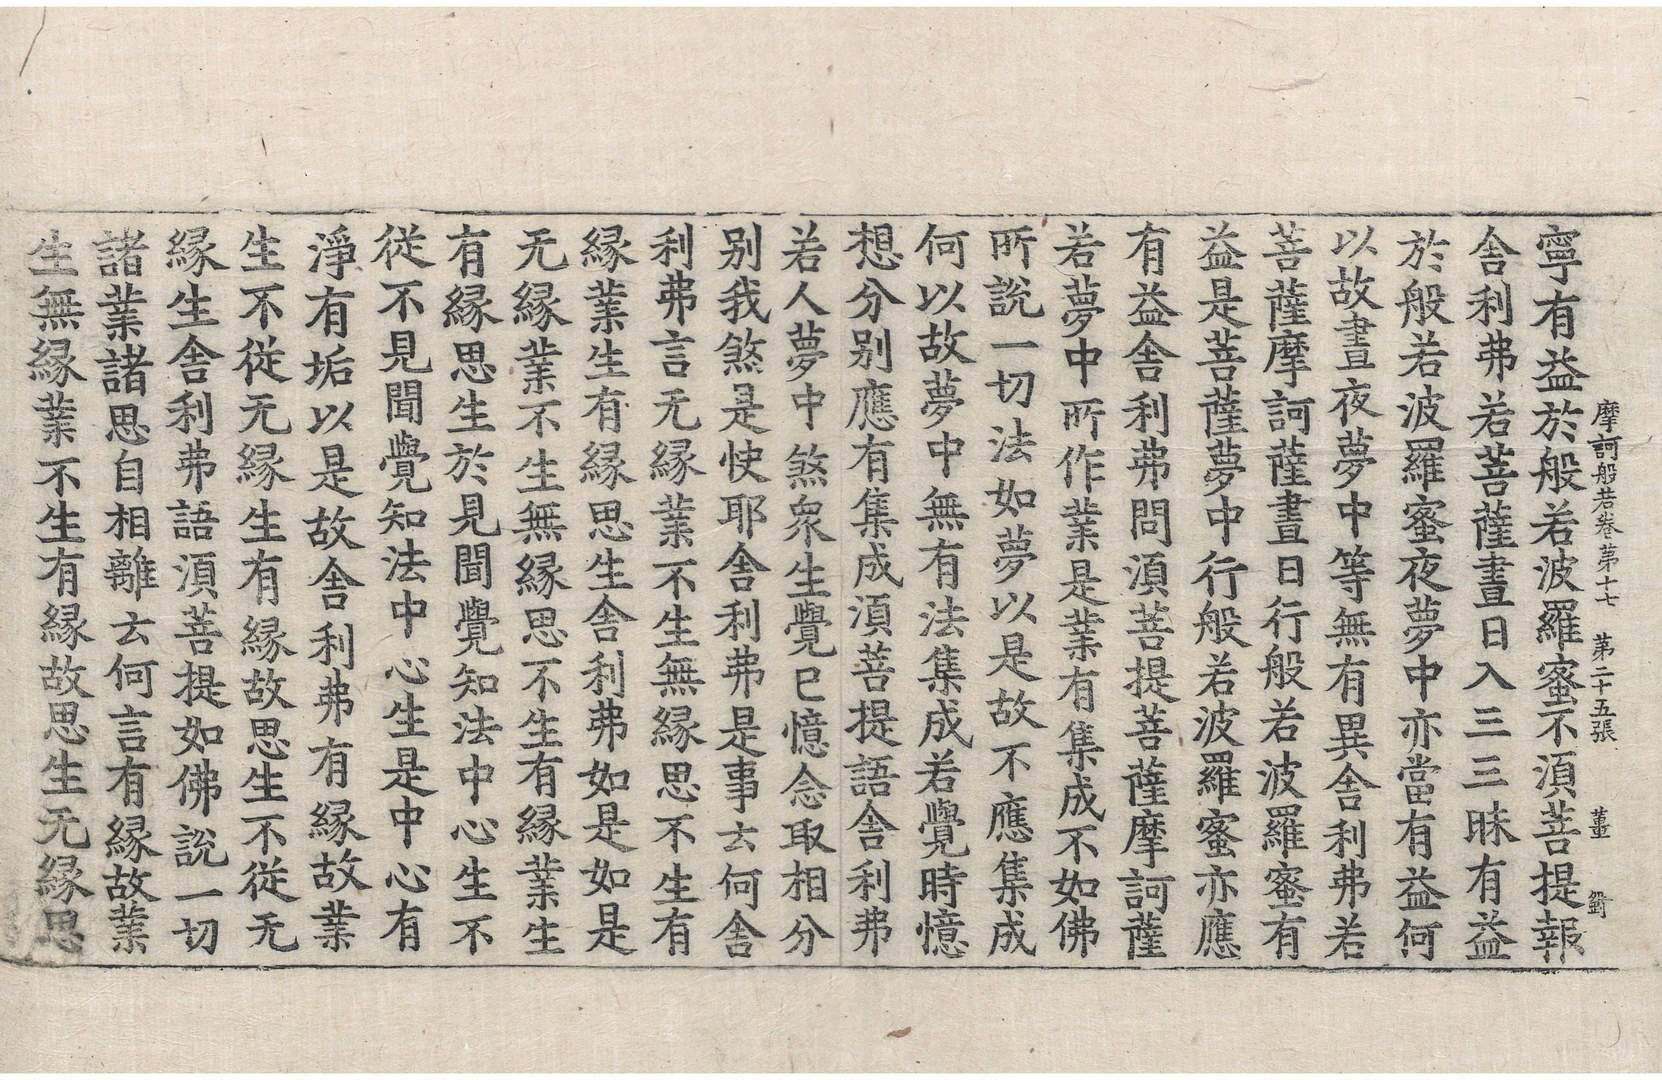 摩訶般若卷第十七 第二十五張 董
寧有益於般若波羅蜜不湏菩提報
舎利弗若菩薩晝日入三三昧有益
於般若波羅蜜夜夢中亦當有益何
以故晝夜夢中等無有異舎利弗若
菩薩摩訶薩晝日行般若波羅蜜有
益是菩薩夢中行般若波羅蜜亦應
有益舎利弗問湏菩提菩薩摩訶薩
若夢中所作業是業有集成不如佛
所說一切法如夢以是故不應集成
何以故夢中無有法集成若覺時憶
想分别應有集成湏菩提語舎利弗
若人夢中煞衆生覺已憶念取相分
别我煞是快耶舎利弗是事云何舎
利弗言无縁業不生無縁思不生有
縁業生有縁思生舎利弗如是如是
无縁業不生無縁思不生有縁業生
有縁思生於見聞覺知法中心生不
從不見聞覺知法中心生是中心有
淨有垢以是故舎利弗有縁故業
生不從无縁生有縁故思生不從无
縁生舎利弗語湏菩提如佛說一切
諸業諸思自相離云何言有縁故業
生無縁業不生有縁故思生无縁思